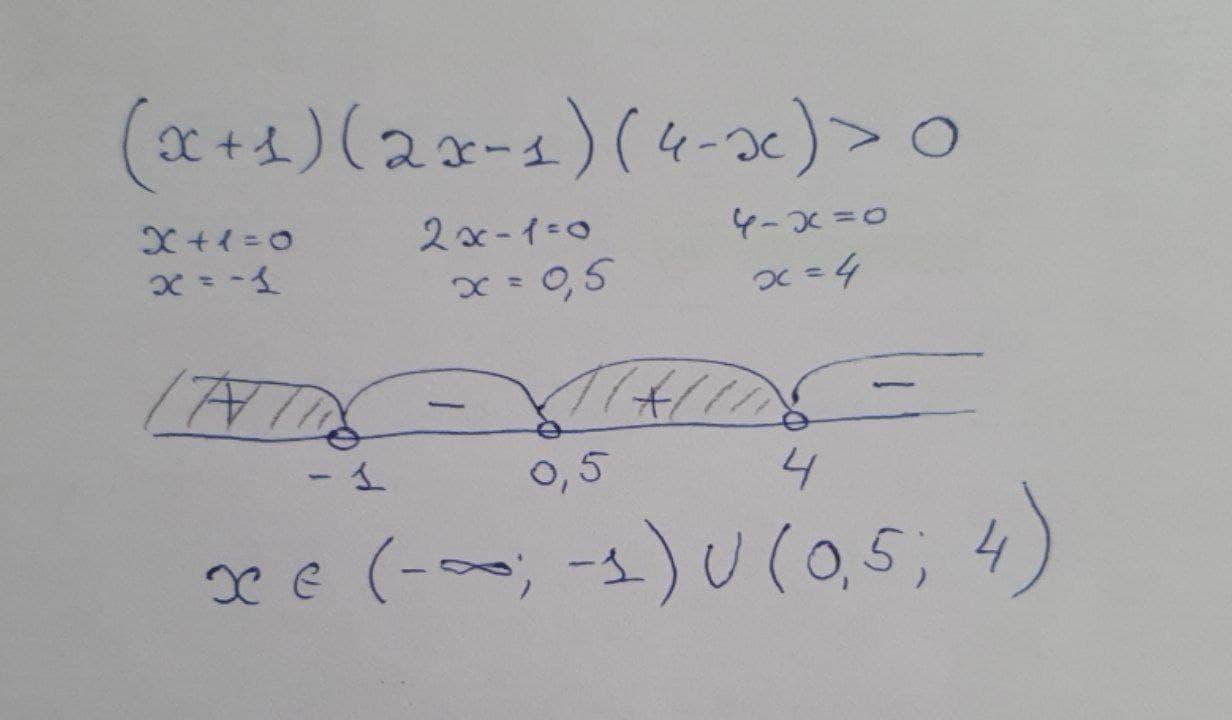 (x+1)(2x-1)(4-x)>0
x+1=0 2x-1=0 4-x=0
x=-1 x=0,5 x=4
+ - + -
-1 0,5 4
x∈(-∞; -1)∪(0,5; 4)